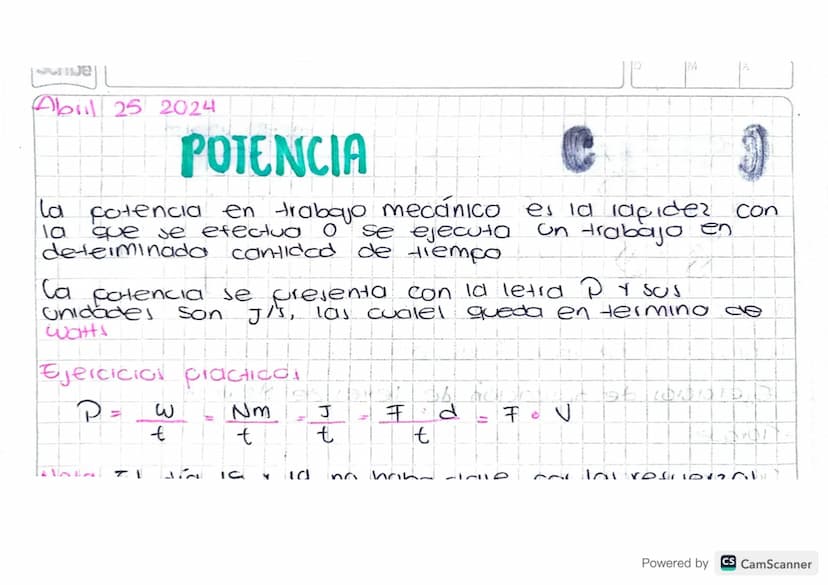 Scribe
D M A
Abril 25 2024
POTENCIA
La potencia en trabajo mecánico es la rapidez con
la que se efectua o se ejecuta un trabajo en
determinada cantidad de tiempo
La potencia se presenta con la letra P y sus
unidades son J/s, las cuales queda en termino de
Watts
Ejercicios practicos
P = W/t = Nm/t = J/t = F · d/t = F · V
El día y no hubo clase por
Powered by CS CamScanner